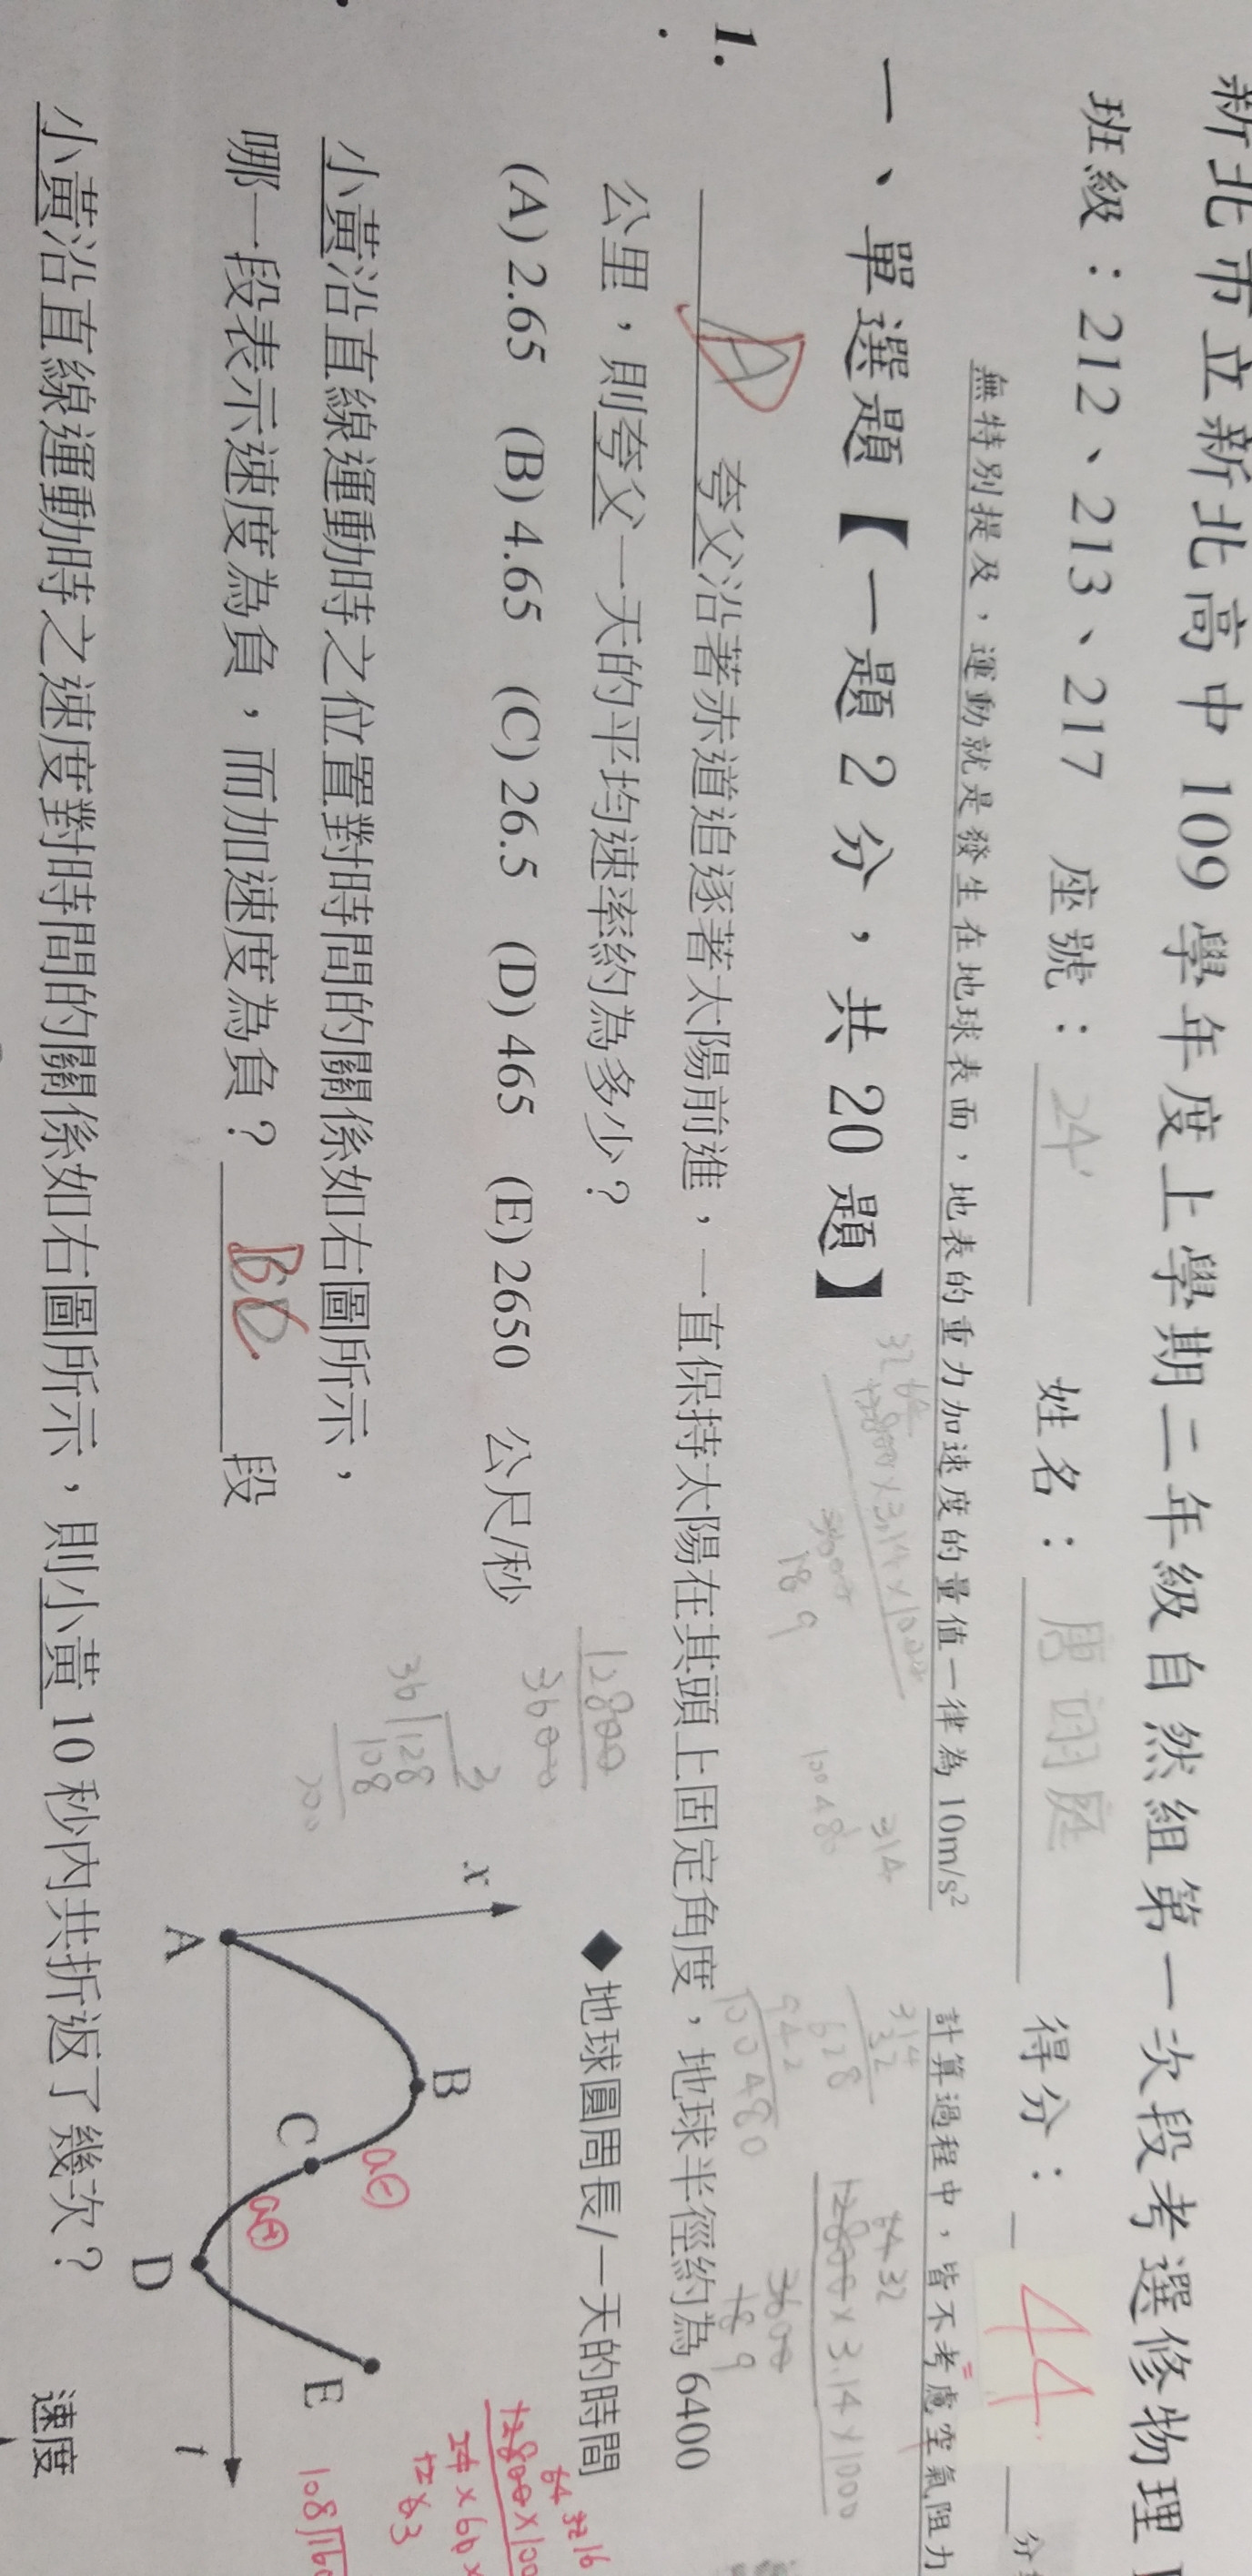 新北市立新北高中 109 學年度上學期二年級自然組第一次段考選修物理
班級：212、213、217 座號：24 姓名： 得分：44 分
無特別提及，運動就是發生在地球表面，地表的重力加速度的量值一律為 10m/s² 計算過程中，皆不考慮空氣阻力
一、單選題【一題 2 分，共 20 題】
1. A 夸父沿著赤道追逐著太陽前進，一直保持太陽在其頭上固定角度，地球半徑約為 6400
公里，則夸父一天的平均速率約為多少？ ◆地球圓周長/一天的時間
(A) 2.65 (B) 4.65 (C) 26.5 (D) 465 (E) 2650 公尺/秒
小黃沿直線運動時之位置對時間的關係如右圖所示，
哪一段表示速度為負，而加速度為負？ BC 段
小黃沿直線運動時之速度對時間的關係如右圖所示，則小黃 10 秒內共折返了幾次？ 速度
12800 × 3.14 × 1000
3600
18 9
314
32
628
942
100480
12800
3600
36 128
108
200
x
A
B
C
D
E
t
a⊖
a⊕